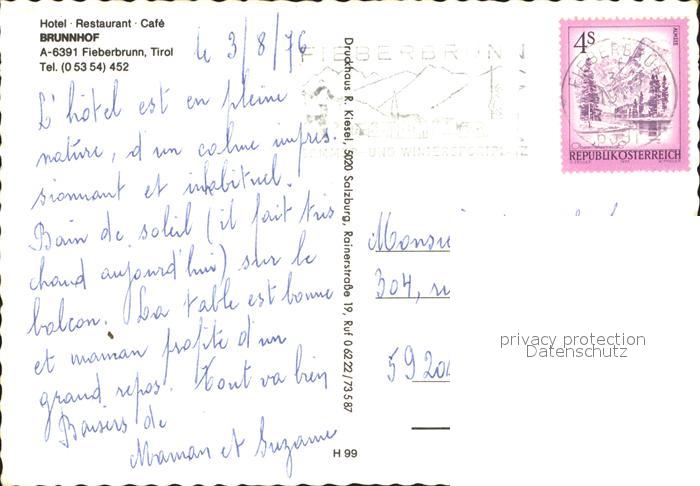 Hotel · Restaurant · Café
BRUNNHOF
A-6391 Fieberbrunn, Tirol
Tel. (0 53 54) 452
le 3/8/76
L'hôtel est en pleine
nature, d'un calme impres-
sionnant et inhabituel.
Bain de soleil (il fait très
chaud aujourd'hui) sur le
balcon. La table est bonne
et maman profite d'un
grand repos. Tout va bien
Baisers de
Maman et Suzanne
Druckhaus R. Kiesel, 5020 Salzburg, Rainerstraße 19, Ruf 0 62 22/73 5 87
H 99
FIEBERBRUNN
UND WINTERSPORTPLATZ
4S
ALMSEE
REPUBLIK ÖSTERREICH
FIEBERBRUNN
Monsi
304,
5920
privacy protection
Datenschutz